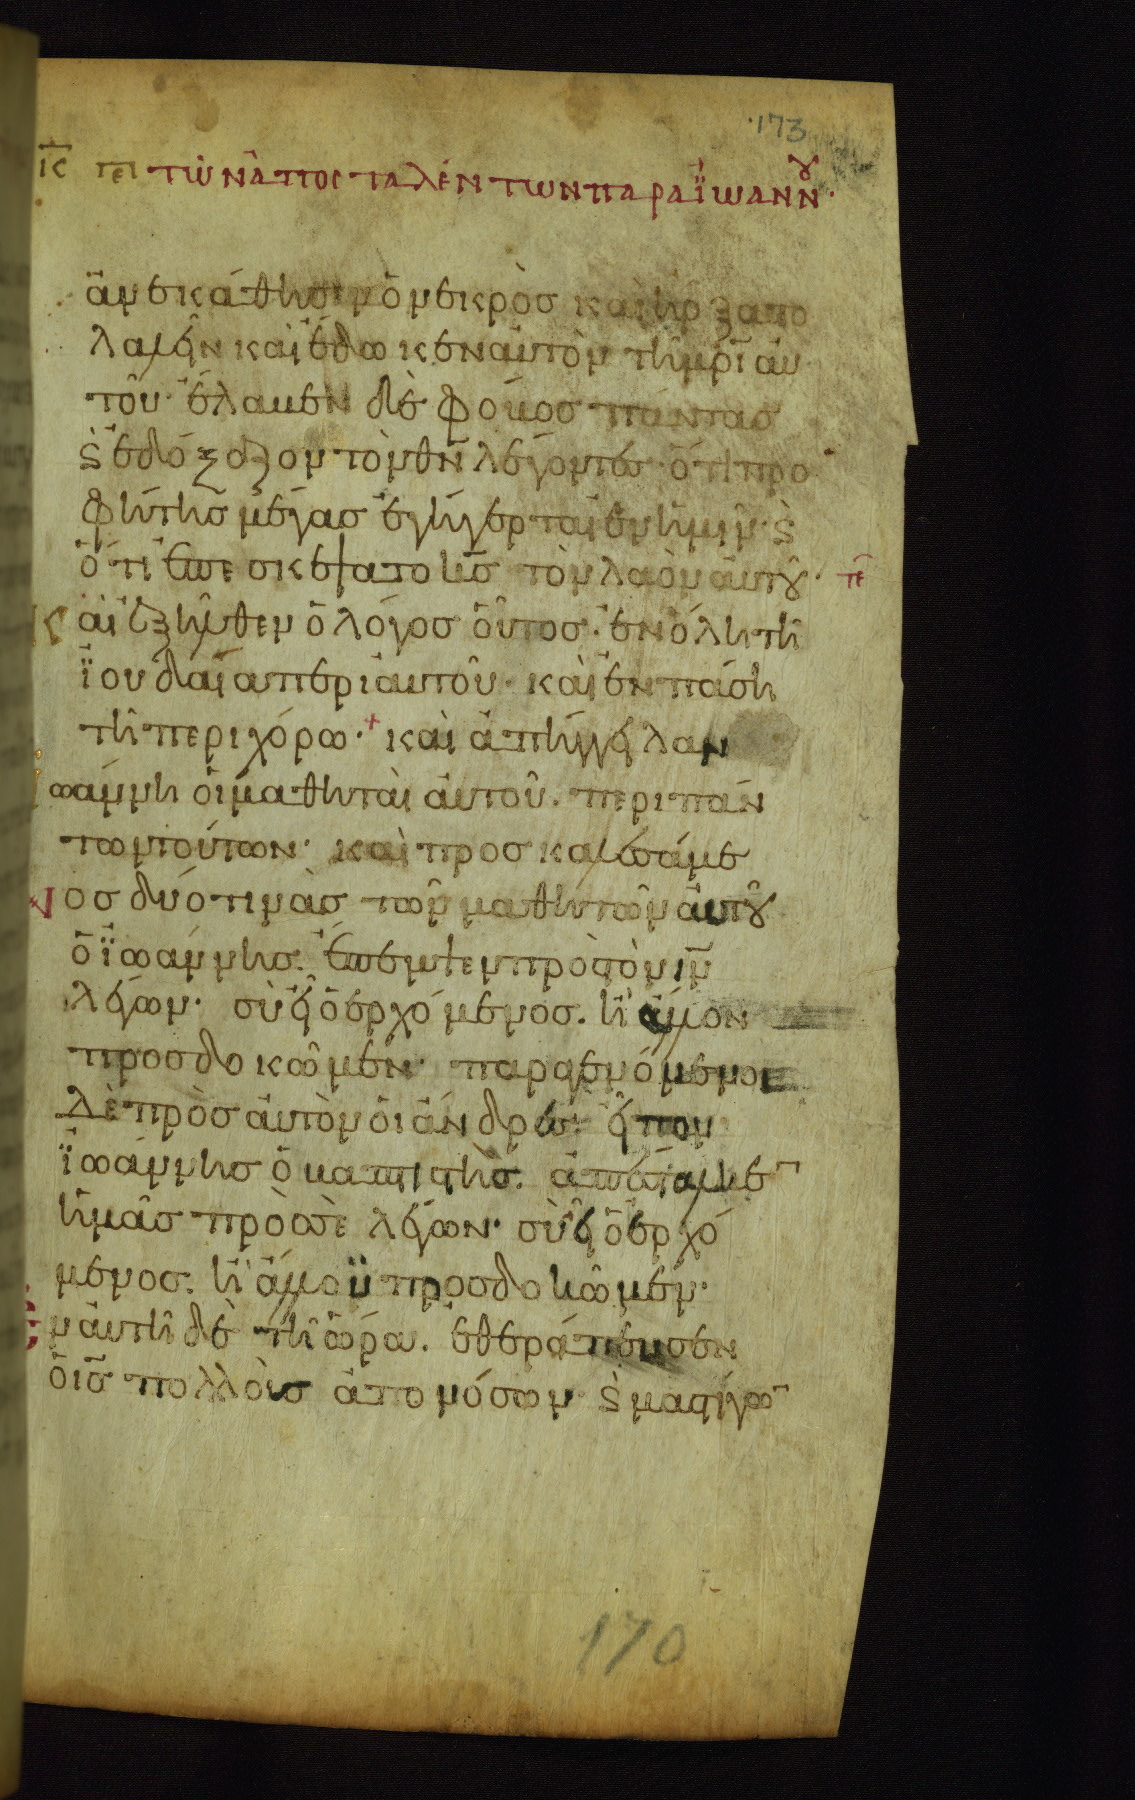 ·173
κ̅ περι τῶν ἀποσταλέντων παρα ϊωάννου·
ἀνεκάθησεν ὁ νεκρὸσ καὶ ἤρξατο
λαλεῖν καὶ ἔδωκεν αὐτὸν τῆ μρι̅ αὐ
τοῦ· ἔλαβεν δὲ φόβοσ πάντασ
ϗ ἐδόξαζον τὸν θν̅ λέγοντεσ· ὅτι προ
φήτησ μέγασ ἐγήγερται ἐν ἡμῖν· ϗ
ὅτι ἐπεσκέψατο ὁ θσ̅ τὸν λαὸν αὐτοῦ· τε
Καὶ ἐξῆλθεν ὁ λόγοσ οὗτοσ· ἐν ὅλη τῆ
ϊουδαία περὶ αὐτοῦ· καὶ ἐν πάση
τῆ περιχόρω·+ καὶ ἀπήγγειλαν
Ἰωάννη οἱ μαθηταὶ αὐτοῦ. περι πάν
των τούτων· καὶ προσκαλεσάμε
Νοσ δύο τινὰσ τῶν μαθητῶν αὐτοῦ
ὁ ϊωάννησ. ἔπεμψεν πρὸσ τὸν ιν̅
λέγων· σὺ εἶ ὁ ἐρχόμενοσ. ἢ ἄλλον
προσδοκῶμεν· παραγενόμενοι
δὲ πρὸσ αὐτὸν οἱ ἄνδρεσ· εἶπον
ϊωάννησ ὁ βαπτιστὴσ. ἀπέσταλκε
ἡμᾶσ πρόσ σὲ λέγων· σὺ εἶ ὁ ἐρχό
μενοσ. ἢ ἄλλον προσδοκῶμεν·
Ἐν αὐτῆ δὲ τῆ ὥρα. ἐθεράπευσεν
ὁ ισ̅ πολλοὺσ ἀπο νόσων ϗ μαστίγω
170